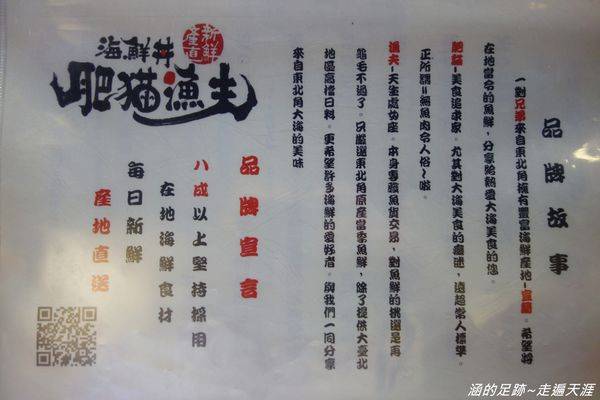 新鮮
產直
海鮮丼
肥猫漁夫
品牌故事
一對兄弟來自東北角擁有豐富海鮮產地-宜蘭。希望將
在地當令的魚鮮,分享給熱愛大海美食的您。
肥貓-美食追求家。尤其對大海美食的癡迷,遠超常人標準。
正所謂=無魚肉令人俗~啦。
漁夫-天生處女座。本身專職魚貨交易,對魚鮮的挑選是再
龜毛不過了。只嚴選東北角原產當季魚鮮,除了提供大臺北
地區高檔日料。更希望許多海鮮的愛好者。與我們一同分享
來自東北角大海的美味
品牌宣言
八成以上堅持採用
在地海鮮食材
每日新鮮
產地直送
涵的足跡~走遍天涯